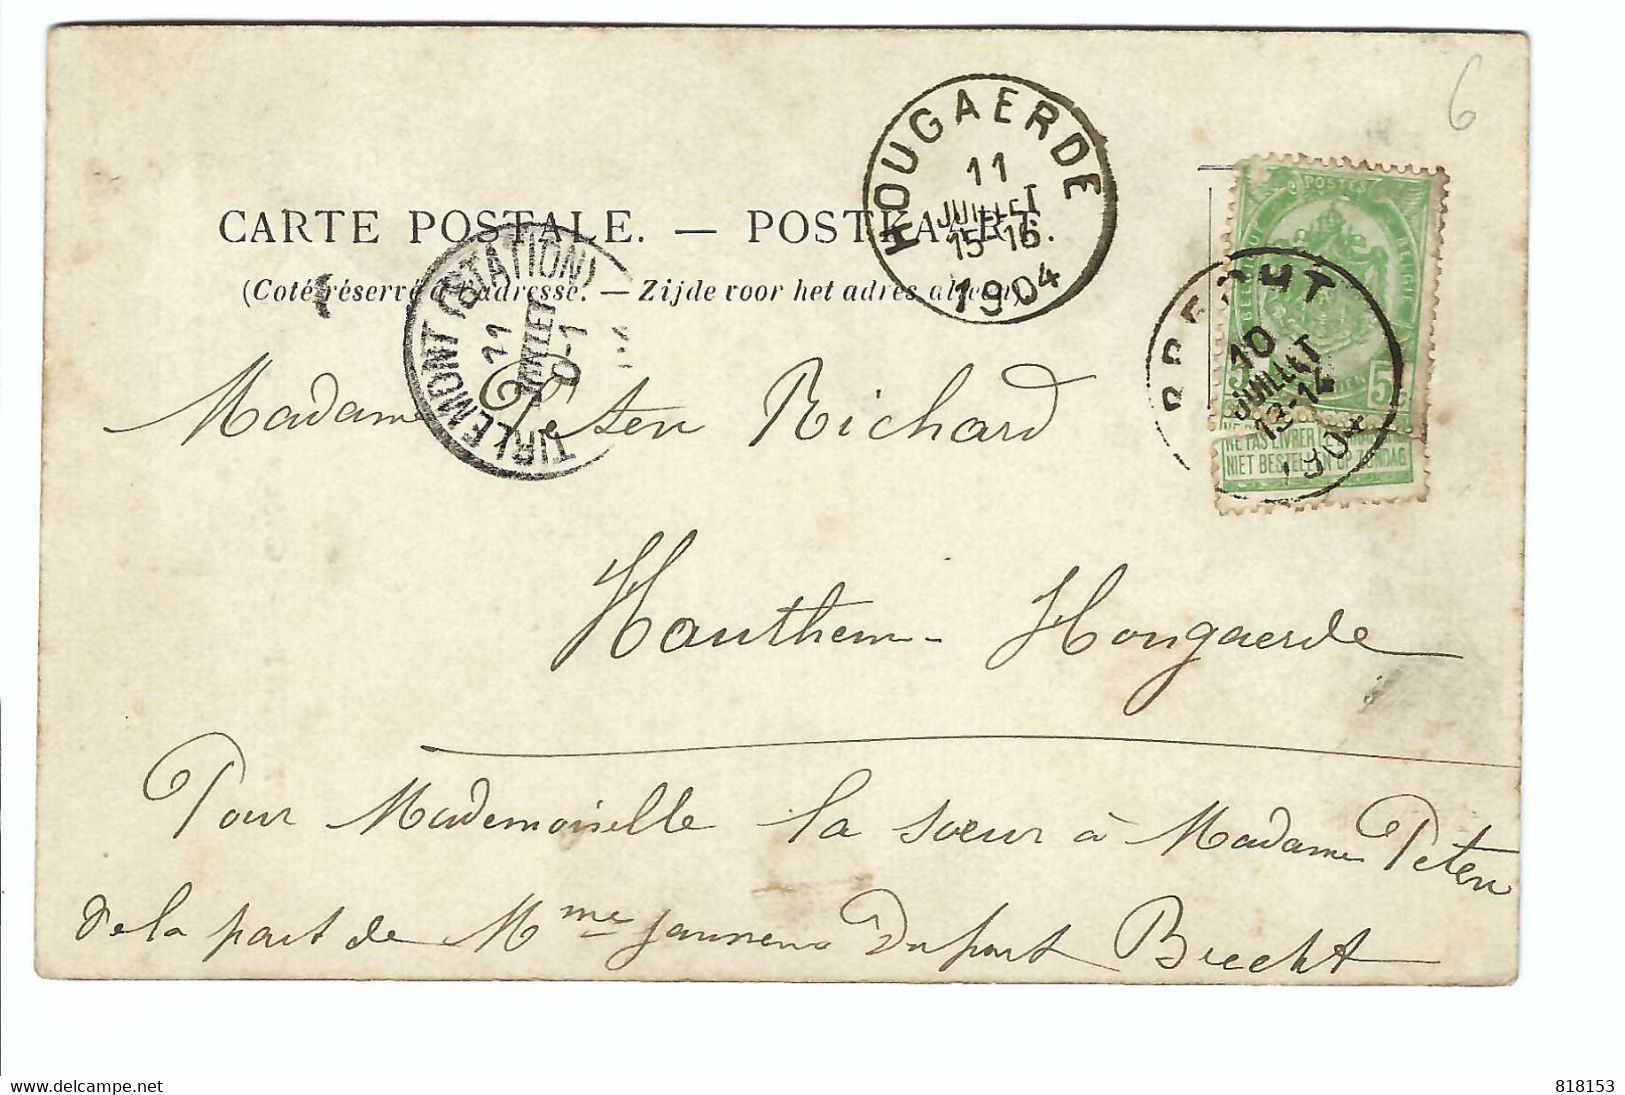 6
HOUGAERDE
11
JUILLET
15-16
1904
POSTES
CARTE POSTALE. — POSTKAART.
(Côté réservé à l'adresse. — Zijde voor het adres alleen)
TIRLEMONT (STATION)
11
JUILLET
0-1
BRECHT
10
JUILLET
13-14
1904
5
NE PAS LIVRER LE DIMANCHE
NIET BESTELLEN OP ZONDAG
Madame Peten Richard
Hauthem - Hougaerde
Pour Mademoiselle la sœur à Madame Peten
de la part de Mme Janssens Dupont Brecht
delcampe.net
818153